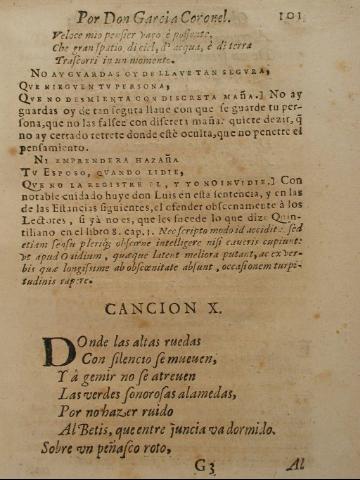 Por Don Garcia Coronel. 101
Veloce mio pensier vago, è possente,
Che gran spatio di ciel, d'acqua, è di terra
Trascorri in un momento.
NO AY GUARDAS OY DE LLAVE TAN SEGURA,
QUE NIEGUEN TU PERSONA,
QUE NO DESMIENTA CON DISCRETA MAÑA.] No ay
guardas oy de tan segura llaue con que se guarde tu per-
sona, que no las falsee con discreta maña. quiere dezir, q̃
no ay cerrado retrete donde estè oculta, que no penetre el
pensamiento.
NI EMPRENDERA HAZAÑA
TV ESPOSO, QUANDO LIDIE,
QUE NO LA REGISTRE EL, Y YO NO INVIDIE.] Con
notable cuidado huye don Luis en esta sentencia, y en las
de las Estancias siguientes, el ofender obscenamente à los
Lectores, si yà no es, que les sucede lo que dize Quin-
tiliano en el libro 8. cap. 3. Nec scripto modo id accidit: sed
etiam sensu plerique obscœne intelligere nisi caueris cupiunt:
vt apud Ouidium, quæque latent meliora putant, ac ex ver-
bis quæ longissime ab obscœnitate absunt, occasionem turpi-
tudinis rapere.
CANCION X.
DOnde las altas ruedas
Con silencio se mueuen,
Y à gemir no se atreuen
Las verdes sonorosas alamedas,
Por no hazer ruido
Al Betis, que entre juncia va dormido.
Sobre vn peñasco roto,
G3 Al